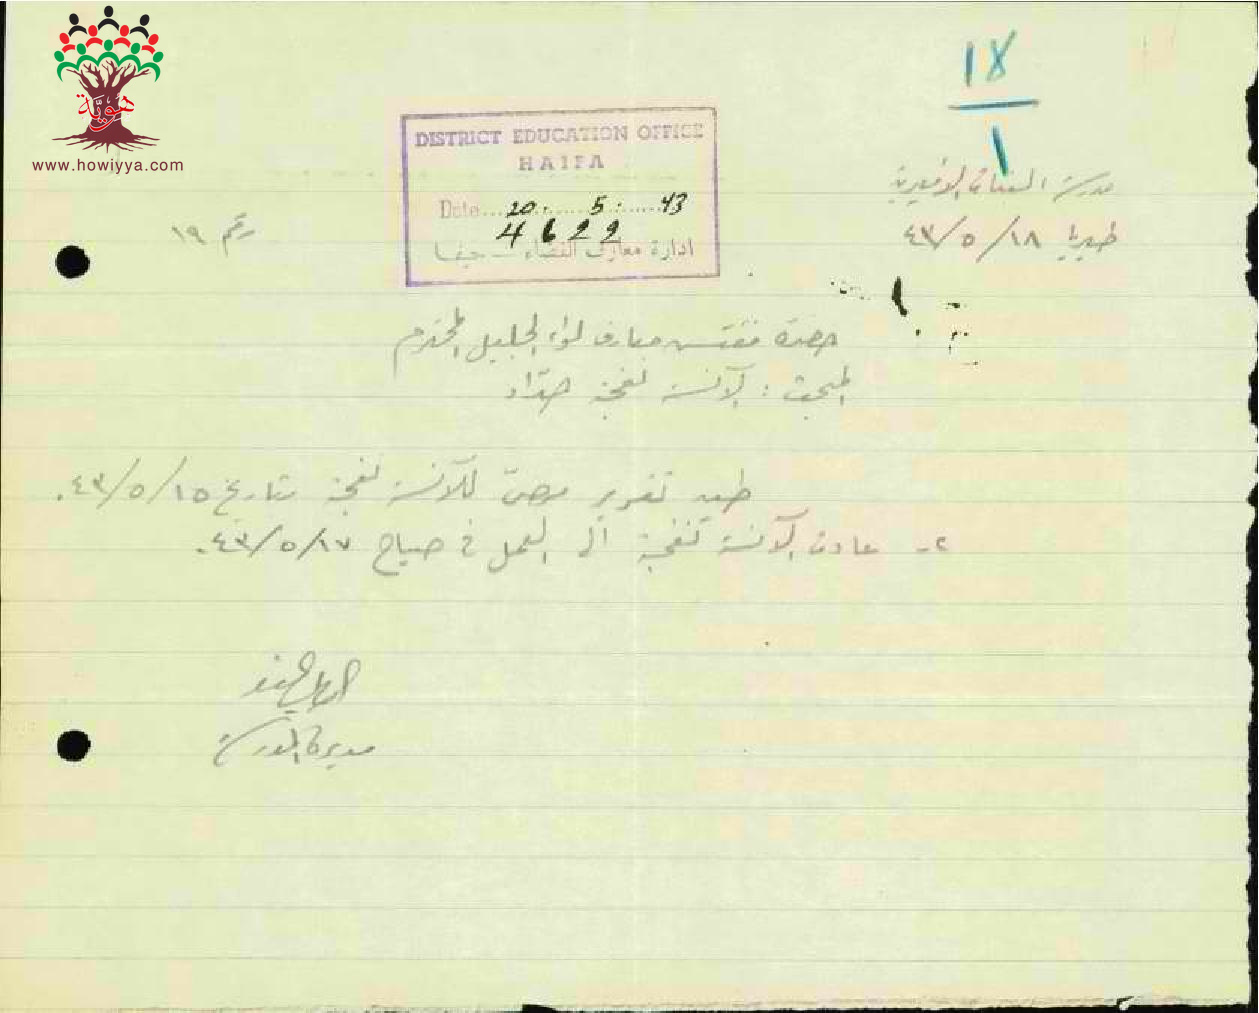 هوية
www.howiyya.com
١٨
١
DISTRICT EDUCATION OFFICE
HAIFA
Date 20. 5. 43
4622
ادارة معارف القضاء - حيفا
مدرسة البنات الاميرية
طبريا ١٨/٥/٤٣
رقم ١٩
حضرة مفتش معارف لواء الجليل المحترم
المبحث : الآنسة حداد
طيه تقرير صحيّ للآنسة بتاريخ ١٥/٥/٤٣.
٢- عادت الآنسة الى العمل في صباح ١٧/٥/٤٣.
مديرة المدرسة